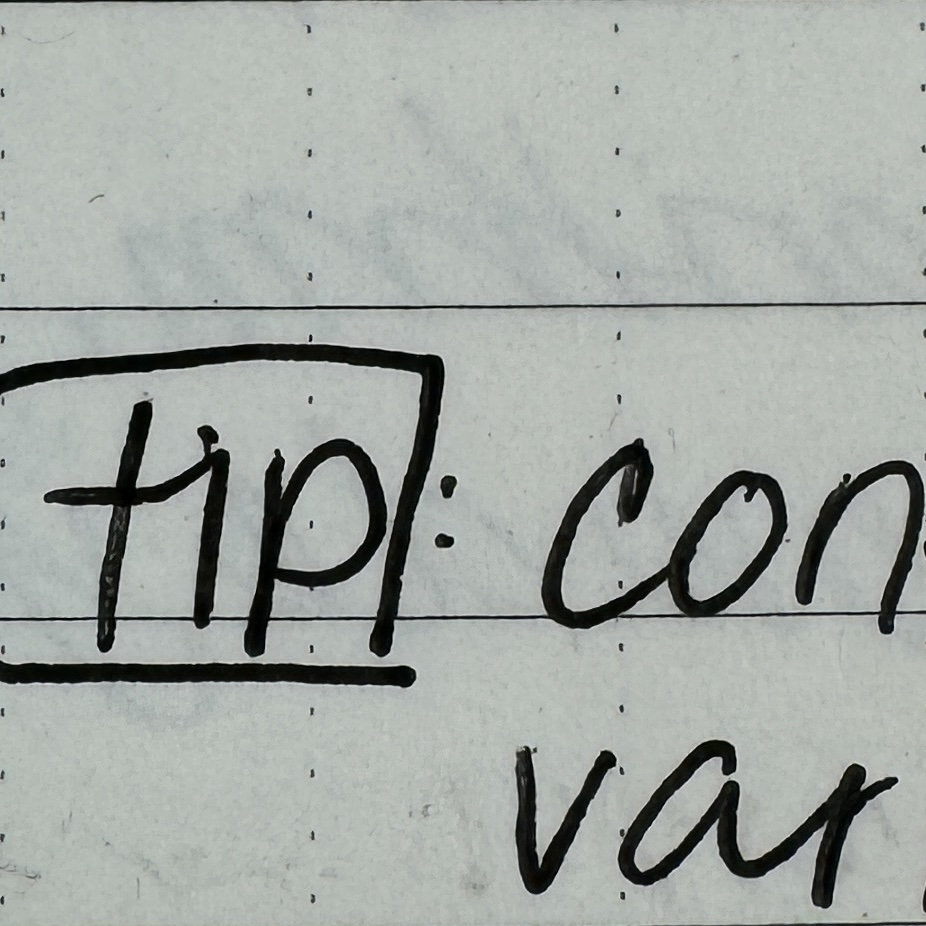 tip: con
var